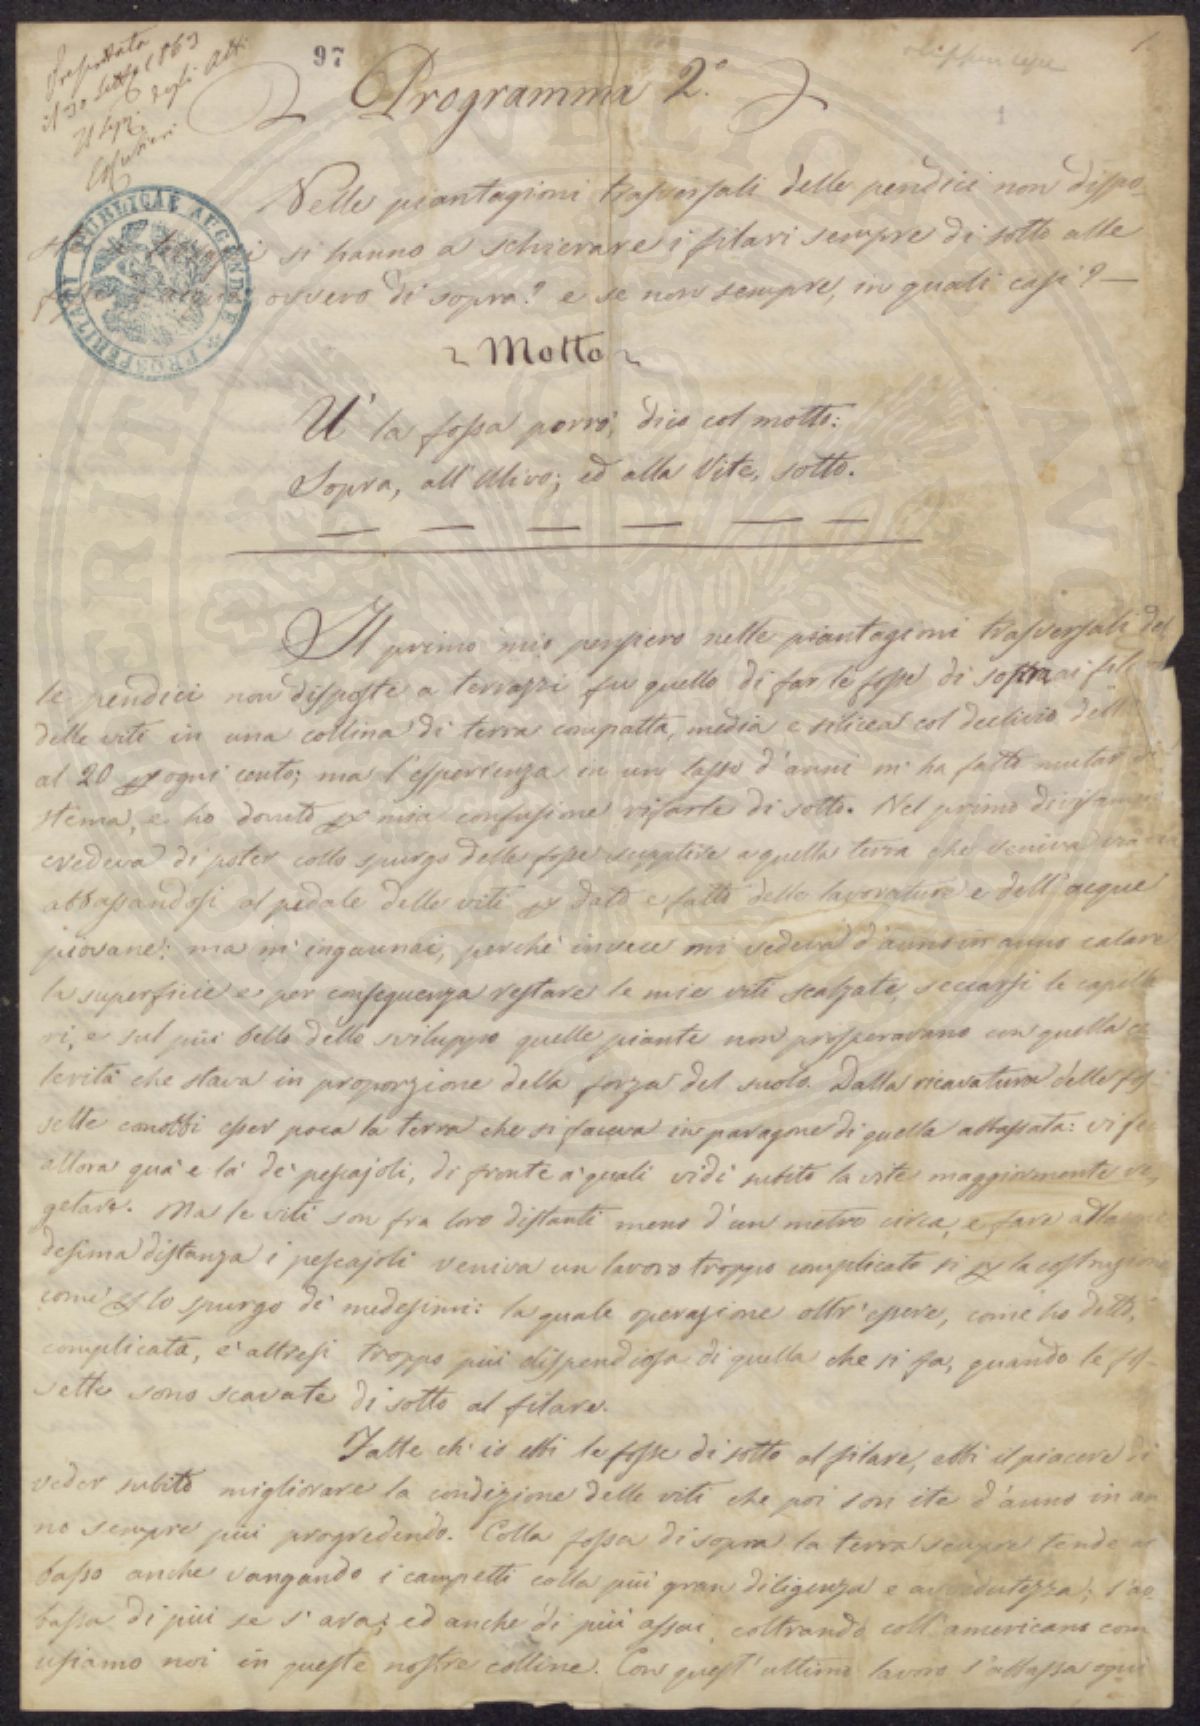 Presentata
il 30 Settbe 1863
Il Segr. degli Atti
Cosfunieri
97
Programma 2.°
1
PROSPERITATI PUBLICAE AUGENDAE
Nelle piantagioni trasversali delle pendici non dispo-
si hanno a schierare i filari sempre di sotto alle
ovvero di sopra? e se non sempre, in quali casi? —
~ Motto ~
U' la fossa porrò, dico col motto:
Sopra, all'Ulivo; ed alla Vite, sotto.
Il primo mio pensiero nelle piantagioni trasversali del
le pendici non disposte a terrazzi fu quello di far le fosse di sopra ai fil
delle viti in una collina di terra compatta, media e silicea col declivio dell'
al 20 per ogni cento; ma l'esperienza in un lasso d'anni m'ha fatto mutar si
stema, e ho dovuto per mia confusione rifarle di sotto. Nel primo divisamen
credeva di poter collo spurgo delle fosse supplire a quella terra che veniva via via
abbassandosi al pedale delle viti per dato e fatto delle lavorature e dell'acque
piovane: ma m'ingannai, perchè invece mi vedeva d'anno in anno calare
la superficie e per conseguenza restare le mie viti scalzate, seccarsi le capilla
ri, e sul più bello dello sviluppo quelle piante non prosperavano con quella ce
lerità che stava in proporzione della forza del suolo. Dalla ricavatura delle fos
sette conobbi esser poca la terra che si faceva in paragone di quella abbassata: vi fei
allora quà e là de' pescajoli, di fronte a' quali vidi subito la vite maggiormente ve
getare. Ma le viti son fra loro distanti meno d'un metro circa, e fare alla me
desima distanza i pescajoli veniva un lavoro troppo complicato sì per la costruzione
come per lo spurgo de' medesimi: la quale operazione oltr'essere, come ho detto,
complicata, è altresì troppo più dispendiosa di quella che si fa, quando le fos-
sette sono scavate di sotto al filare.
Fatte ch'io ebbi le fosse di sotto al filare, ebbi il piacere di
veder subito migliorare la condizione delle viti che poi son ite d'anno in an
no sempre più progredendo. Colla fossa di sopra la terra sempre tende al
basso anche vangando i campetti colla più gran diligenza e avvedutezza; s'ab
bassa di più se s'ara; ed anche di più assai, coltrando coll'americano com
usiamo noi in queste nostre colline. Con quest'ultimo lavoro s'abbassa ogni